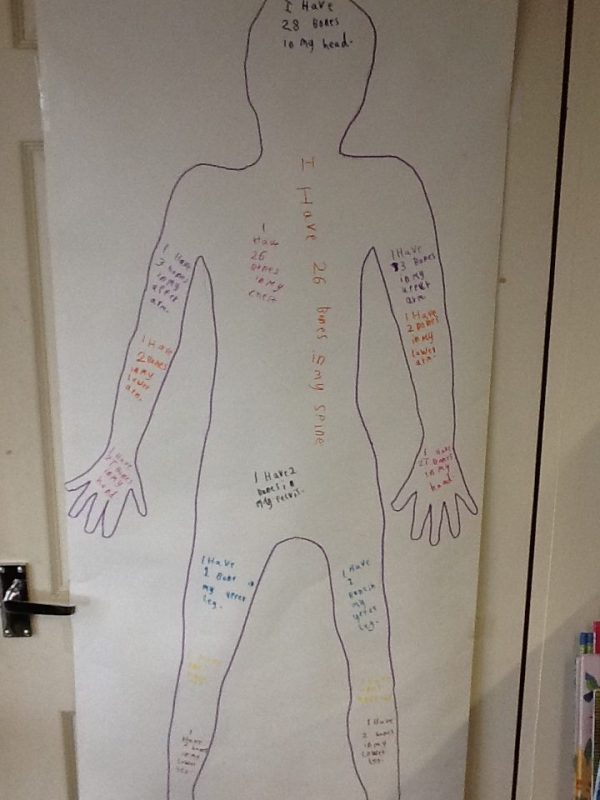 I Have
28 Bones
in my head.
I Have 26 Bones in my spine
I
Have
26
Bones
in my
chest
I Have
3 bones
in my
upper
arm.
I Have
3 Bones
in my
upper
arm.
I Have
2 Bones
in my
lower
arm.
I Have
2 Bones
in my
lower
arm.
I Have
27 Bones
in my
hand
I Have
27 Bones
in my
hand
I Have 2
Bones in
my
I Have
1 Bone in
my upper
leg.
I Have
1
Bone in
my
upper
leg.
I
Have
2 bones
in my
lower
leg.
I Have
2 bones
in my
lower
leg.